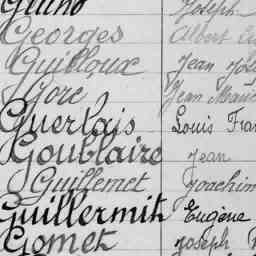 Georges Albert
Guilloux Jean
Gore Jean
Guerlais Louis
Goublaire Jean
Guillemet Joachim
Guillermit Eugène
Gomez Joseph